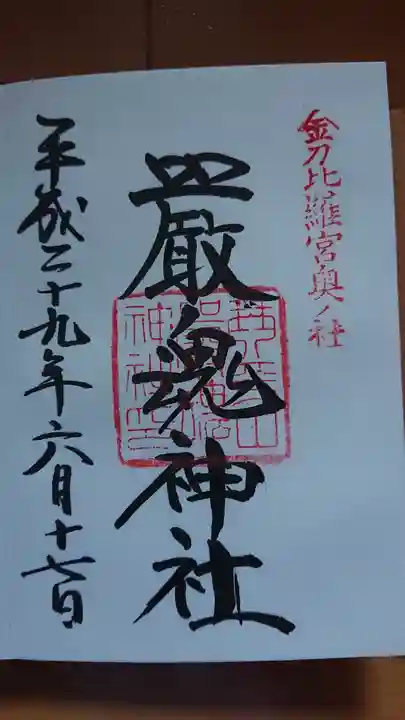 金刀比羅宮奥ノ社
嚴魂神社
平成二十九年六月十七日